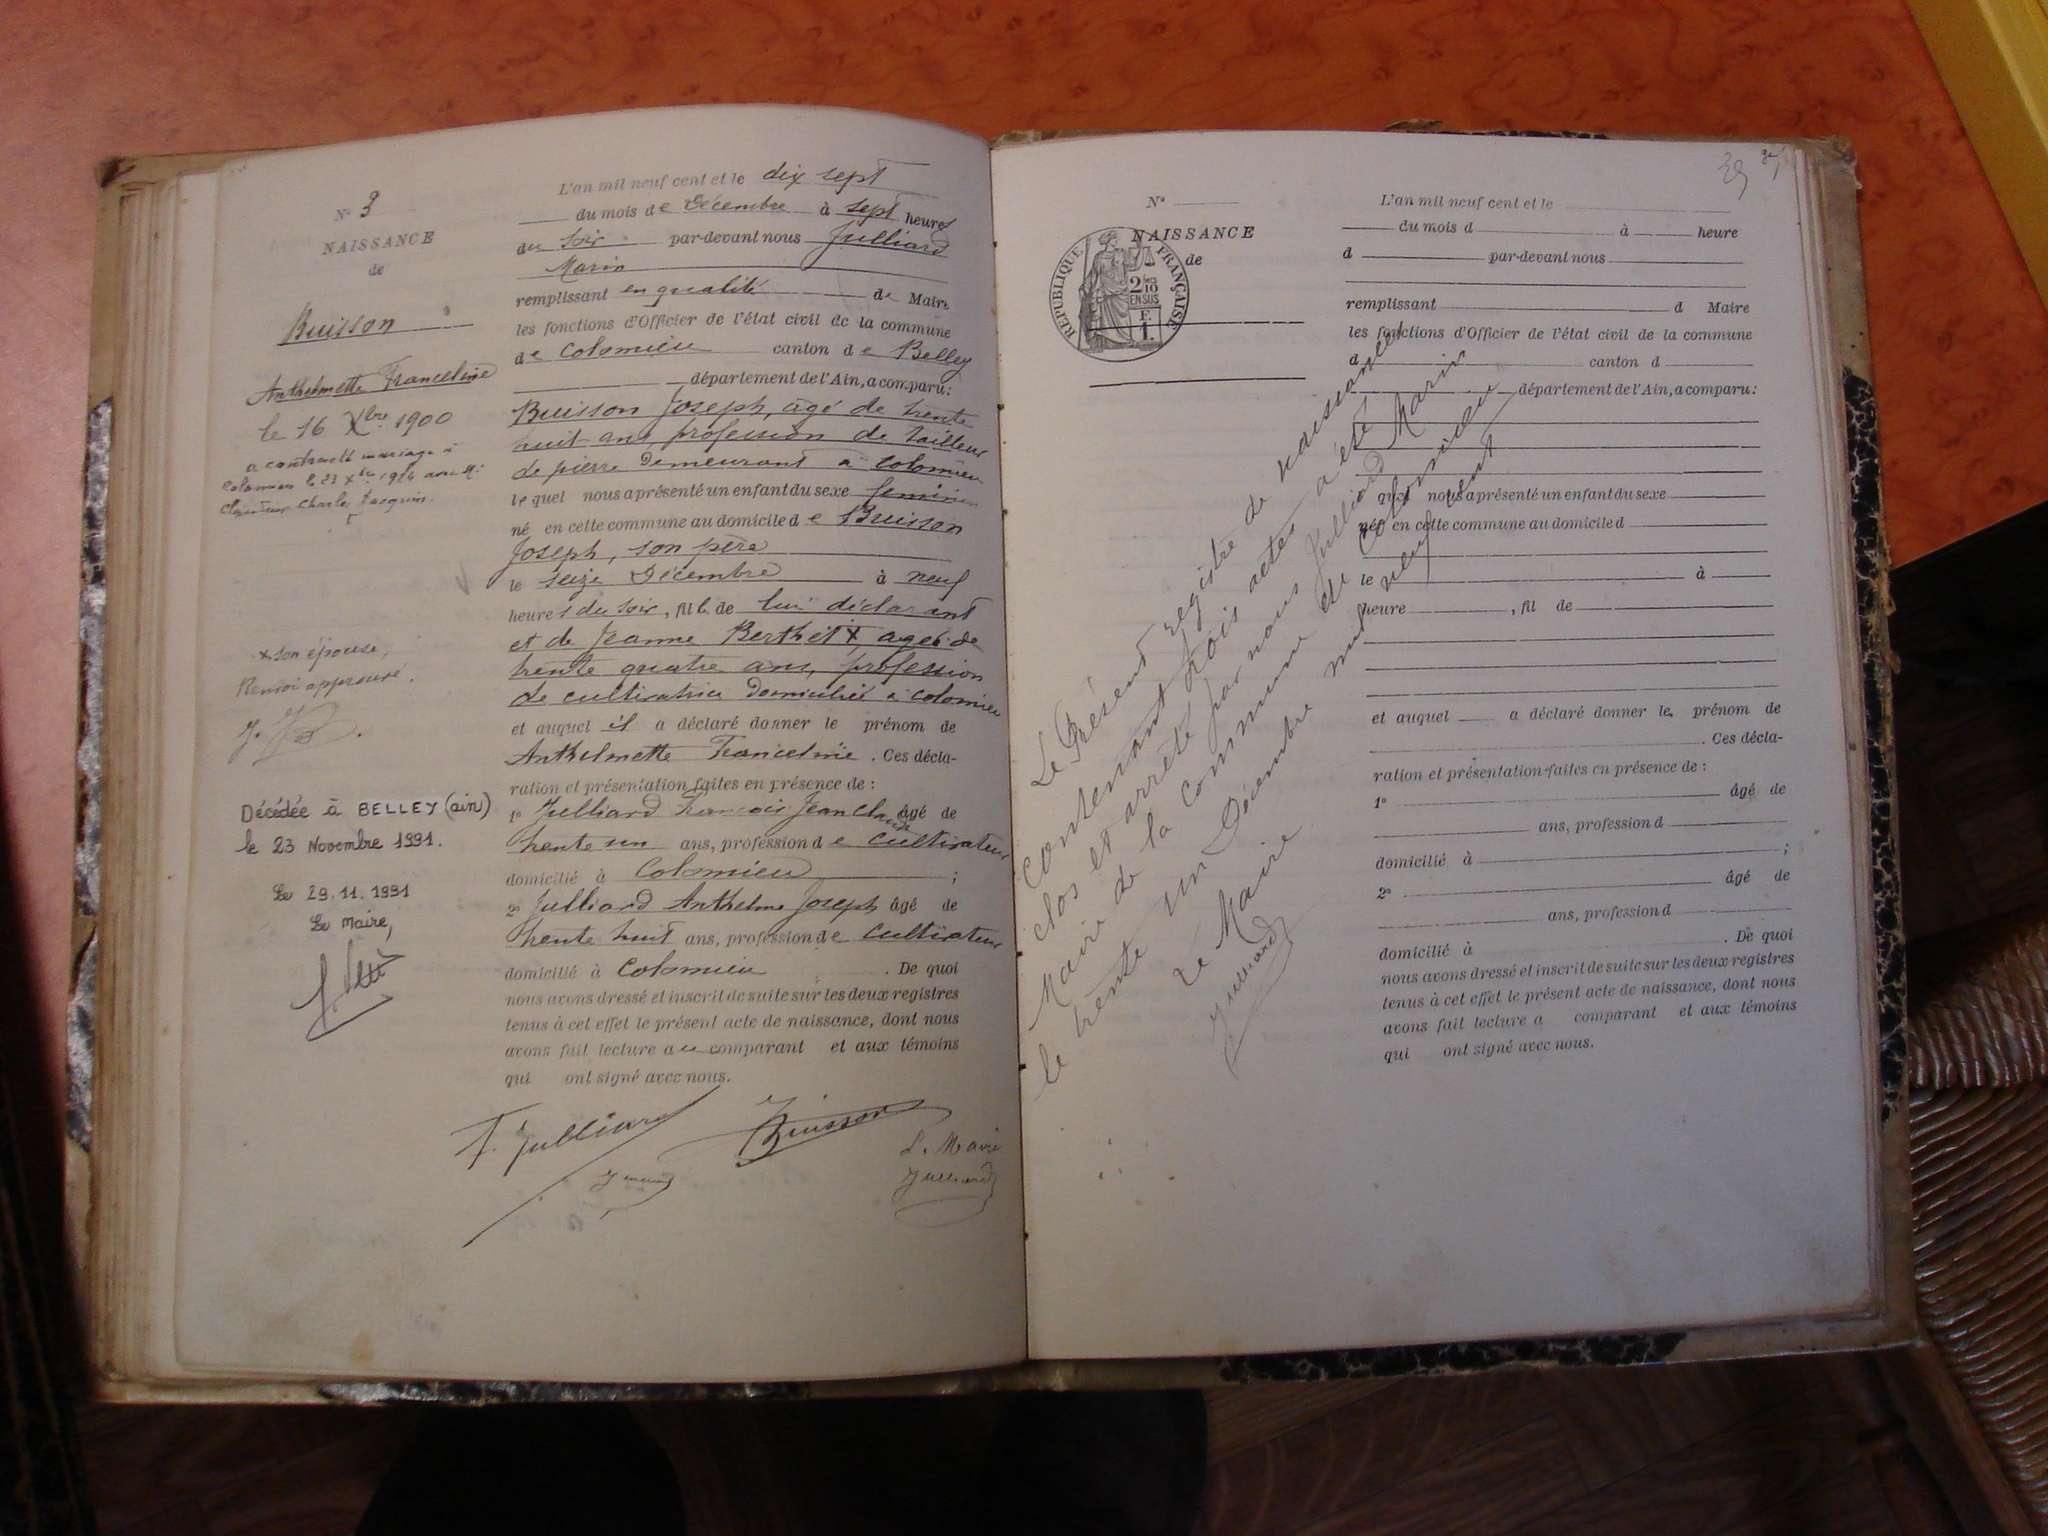 N° 3
NAISSANCE
de
Buisson
Anthelmette Franceline
le 16 Xbre 1900
a contracté mariage à
Colomieu le 23 Xbre 1924 avec
Charles Jacquin.
x son épouse,
Renvoi approuvé.
Décédée à BELLEY (ain)
le 23 Novembre 1991.
Le 29.11.1991
Le Maire,
L'an mil neuf cent et le dix sept
du mois de Décembre à sept heures
du soir par-devant nous Julliard
Marin
remplissant en qualité de Maire
les fonctions d'Officier de l'état civil de la commune
de Colomieu canton de Belley
département de l'Ain, a comparu:
Buisson Joseph, âgé de trente
huit ans, profession de tailleur
de pierre demeurant à Colomieu
lequel nous a présenté un enfant du sexe feminin
né en cette commune au domicile de Buisson
Joseph, son père
le seize Décembre à neuf
heures du soir, fille de lui déclarant
et de Jeanne Berthet x, agée de
trente quatre ans, profession
de cultivatrice domiciliée à Colomieu
et auquel il a déclaré donner le prénom de
Anthelmette Franceline. Ces décla-
ration et présentation faites en présence de :
1° Julliard François Jean Claude âgé de
trente un ans, profession de cultivateur
domicilié à Colomieu ;
2° Julliard Anthelme Joseph âgé de
trente huit ans, profession de cultivateur
domicilié à Colomieu. De quoi
nous avons dressé et inscrit de suite sur les deux registres
tenus à cet effet le présent acte de naissance, dont nous
avons fait lecture au comparant et aux témoins
qui ont signé avec nous.
F. Julliard
Buisson
L. Maire
Julliard
39
N°
NAISSANCE
de
RÉPUBLIQUE FRANÇAISE
2/10
EN SUS
F.
1.
L'an mil neuf cent et le
du mois d à heure
d par-devant nous
remplissant d Maire
les fonctions d'Officier de l'état civil de la commune
d canton d
département de l'Ain, a comparu:
quel nous a présenté un enfant du sexe
né en cette commune au domicile d
le à
heure , fil de
et auquel a déclaré donner le prénom de
. Ces décla-
ration et présentation faites en présence de :
1° âgé de
ans, profession d
domicilié à ;
2° âgé de
ans, profession d
domicilié à . De quoi
nous avons dressé et inscrit de suite sur les deux registres
tenus à cet effet le présent acte de naissance, dont nous
avons fait lecture a comparant et aux témoins
qui ont signé avec nous.
Le Présent registre de naissance
contenant trois actes a été
clos et arrêté par nous Julliard Marin
Maire de la Commune de Colomieu
le trente un Décembre mil neuf cent
Le Maire
Julliard